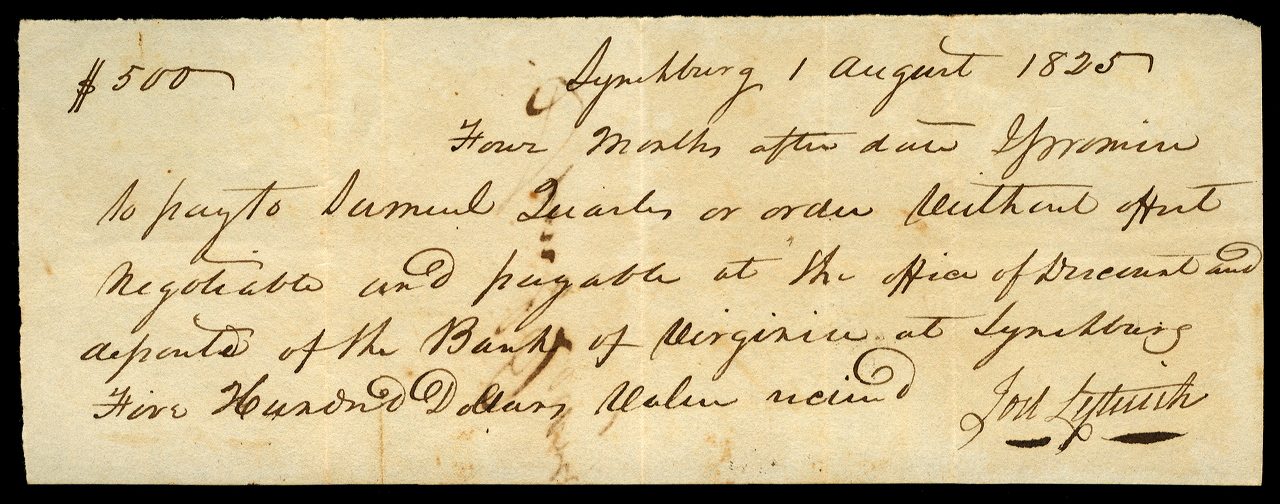 $500
Lynchburg 1 August 1825
Four Months after date I promise
to pay to Samuel Quarles or order Without offset
Negotiable and payable at the office of Discount and
deposite of the Bank of Virginia at Lynchburg
Five Hundred Dollars Value received
Joel Leftwich